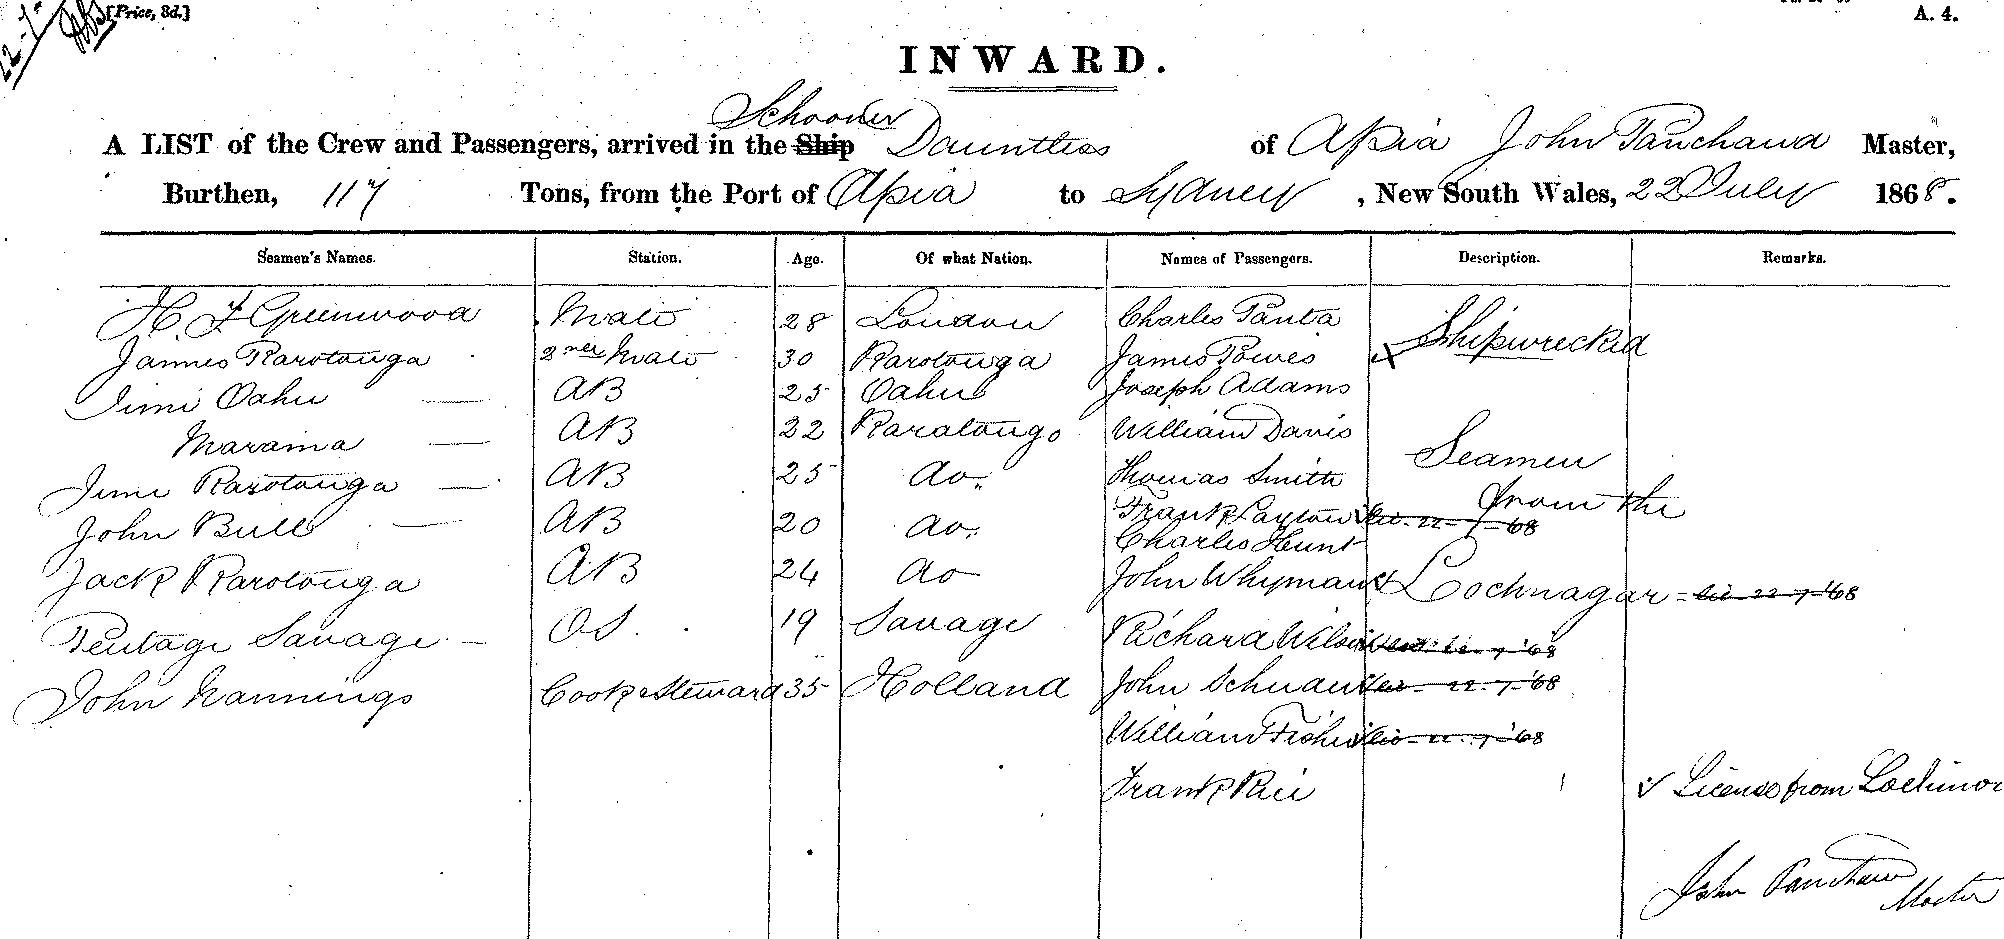 [Price, 3d.]
A. 4.
INWARD.
Schooner
A LIST of the Crew and Passengers, arrived in the Ship Dauntless of Apia John Panchaud Master,
Burthen, 117 Tons, from the Port of Apia to Sydney, New South Wales, 22 July 1868.
Seamen's Names. Station. Age. Of what Nation. Names of Passengers. Description. Remarks.
H. F Greenwood Mate 28 London Charles Shipwrecked
James Rarotonga 2nd Mate 30 Rarotonga James
Jimi Oahu AB 25 Oahu Joseph Adams
Marama AB 22 Raratongo William Davis Seamen
Jimi Rarotonga AB 25 do. Thomas Smith from the
John Bull AB 20 do. Frank Layton 22-7-68
Charles Hunt
Jack Rarotonga AB 24 do John Whyman Lochnagar - 22-7-'68
Savage OS. 19 Savage Richard Wilson 22-7-'68
John Nannings Cook & Steward 35 Holland John 22-7-'68
William Fisher 22-7-'68
Frank Rice License from
John Panchaud
Master